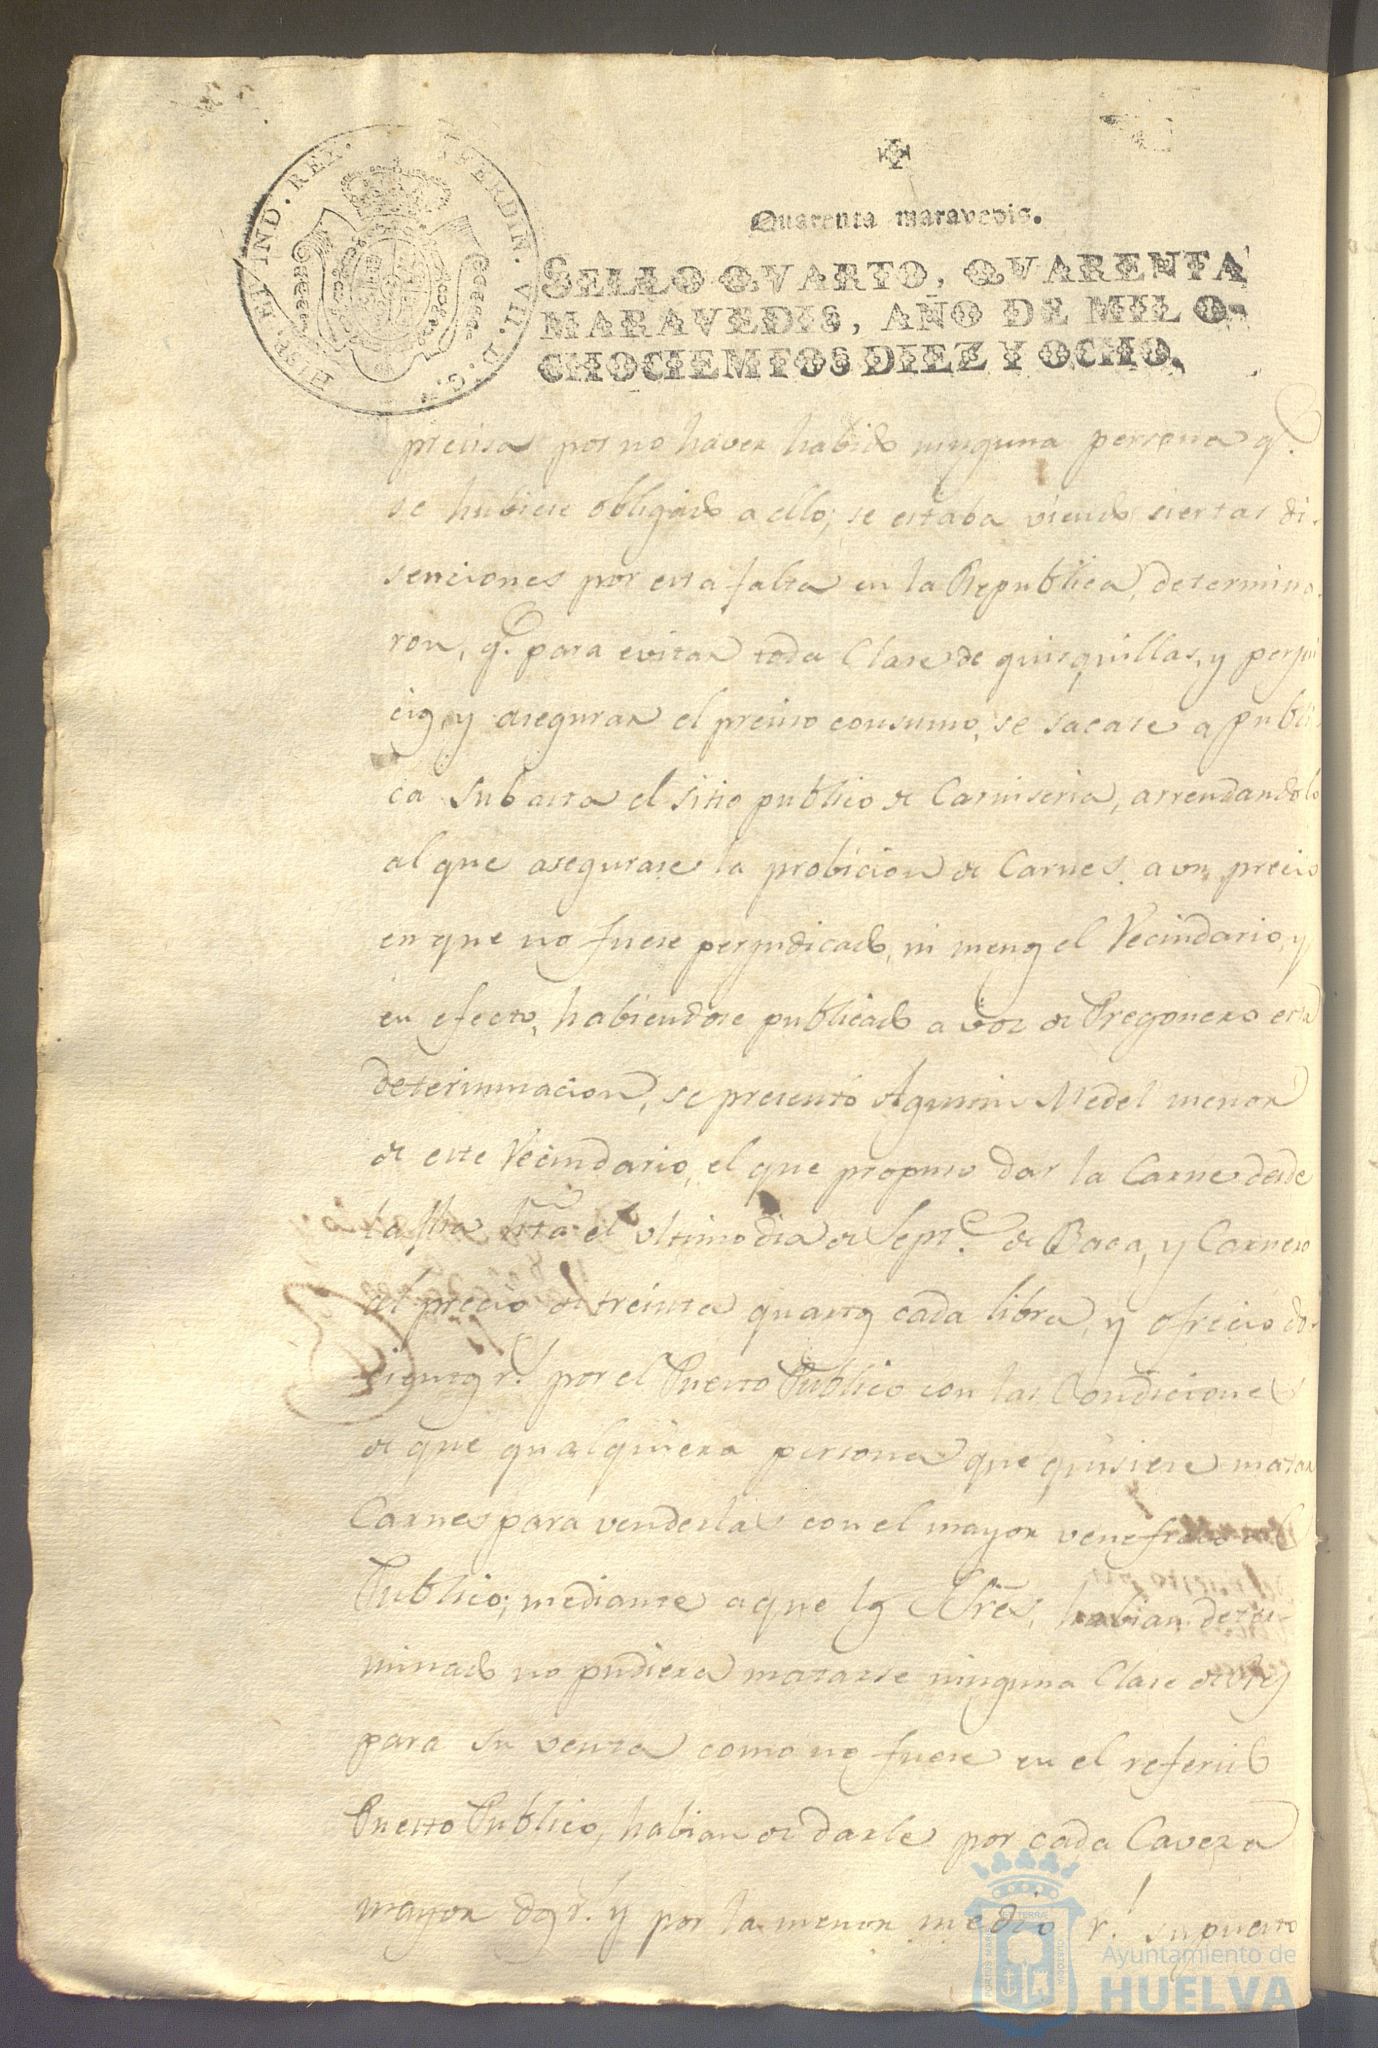 HISP. ET IND. REX. FERDIN. VII. D. G.
Quarenta maravedis.
SELLO QVARTO, QVARENTA
MARAVEDIS, AÑO DE MIL O-
CHOCIENTOS DIEZ Y OCHO.
precisa por no haver habido ninguna persona q.e
se hubiese obligado a ello; se estaba viendo siertas di-
senciones por esta falta en la Republica, determina-
ron, q.e para evitar toda Clase de quisquillas, y perjui
cios, y asegurar el preciso consumo, se sacase a publi
ca subasta el sitio publico de Carniseria, arrendandolo
al que asegurase la probicion de Carnes a un precio
en que no fuese perjudicado, ni menos el Vecindario, y
en efecto, habiendose publicado a voz de Pregonero esta
determinacion, se presentó Agustin Medel menor
de este Vecindario, el que propuso dar la Carne desde
la fha hta el ultimo dia de Sept.e de Baca, y Carnero
al precio de treinta quartos cada libra, y ofrecio do-
sientos r.s por el Puesto Publico con las Condiciones
de que qualquiera persona que quisiere matar
Carnes para venderlas con el mayor venefico al
Publico; mediante a que los Sres, habian deter-
minado no pudiera matarse ninguna Clase de Res
para su venta como no fuese en el referido
Puesto Publico, habian de darle por cada Caveza
mayor dos r.s y por la menor medio r.l su puesto
Ayuntamiento de
HUELVA